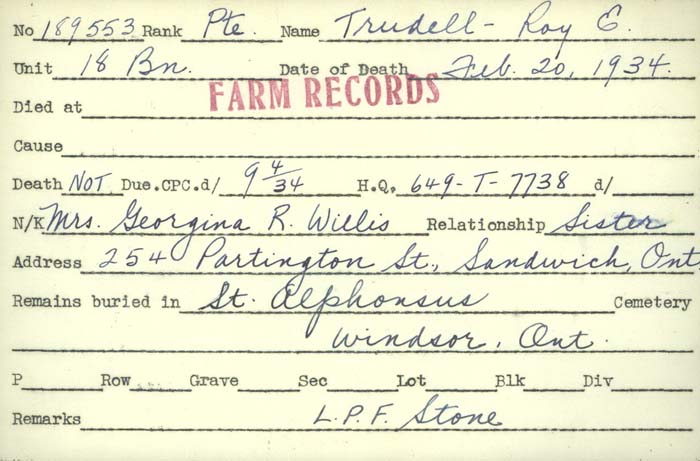 No 189553 Rank Pte. Name Trudell - Roy E.
Unit 18 Bn. Date of Death Feb. 20, 1934.
FARM RECORDS
Died at
Cause
Death NOT Due.CPC.d/ 9 4/34 H.Q. 649-T-7738 d/
N/K Mrs. Georgina R. Willis Relationship Sister
Address 254 Partington St., Sandwich, Ont
Remains buried in St. Alphonsus Cemetery
Windsor, Ont.
P Row Grave Sec Lot Blk Div
Remarks L.P.F. Stone